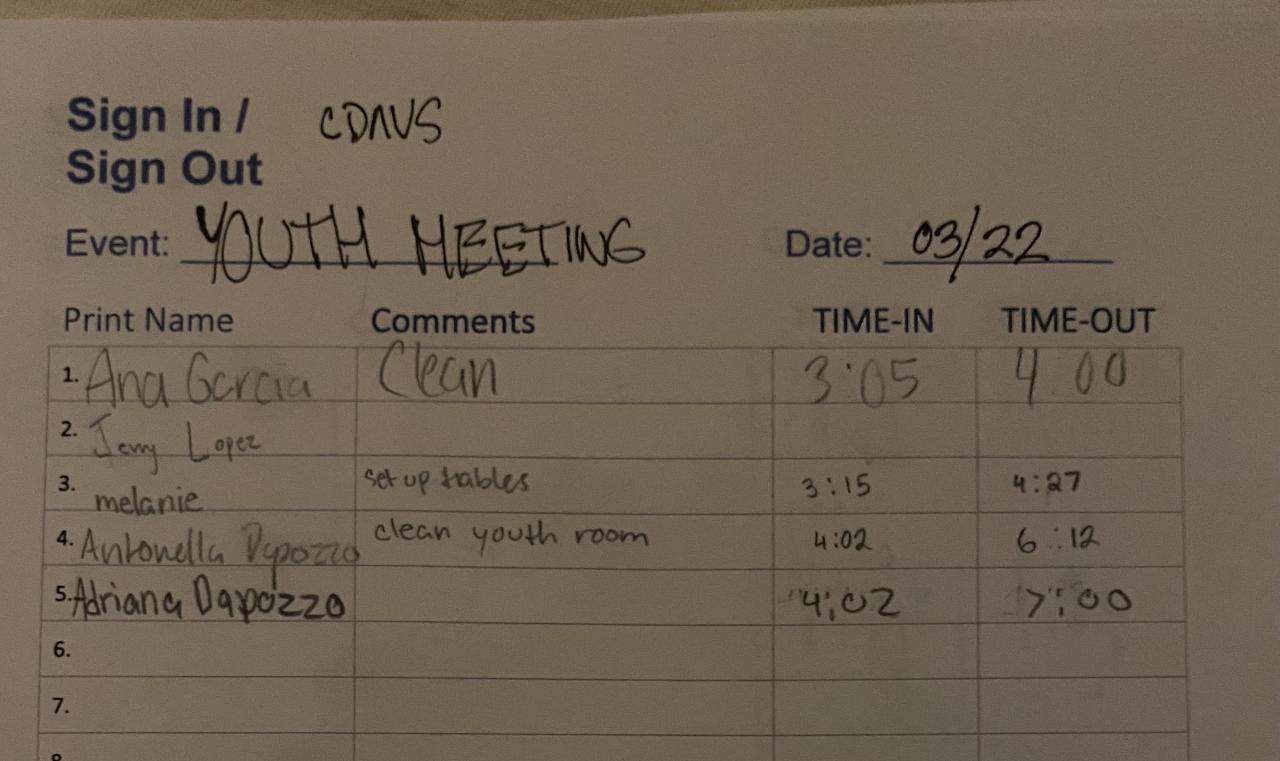 Sign In / CDAVS
Sign Out
Event: YOUTH MEETING Date: 03/22
Print Name Comments TIME-IN TIME-OUT
1. Ana Garcia Clean 3:05 4:00
2. Jerry Lopez
3. melanie set up tables 3:15 4:27
4. Antonella Dapozzo clean youth room 4:02 6:12
5. Adriana Dapozzo 4:02 7:00
6.
7.